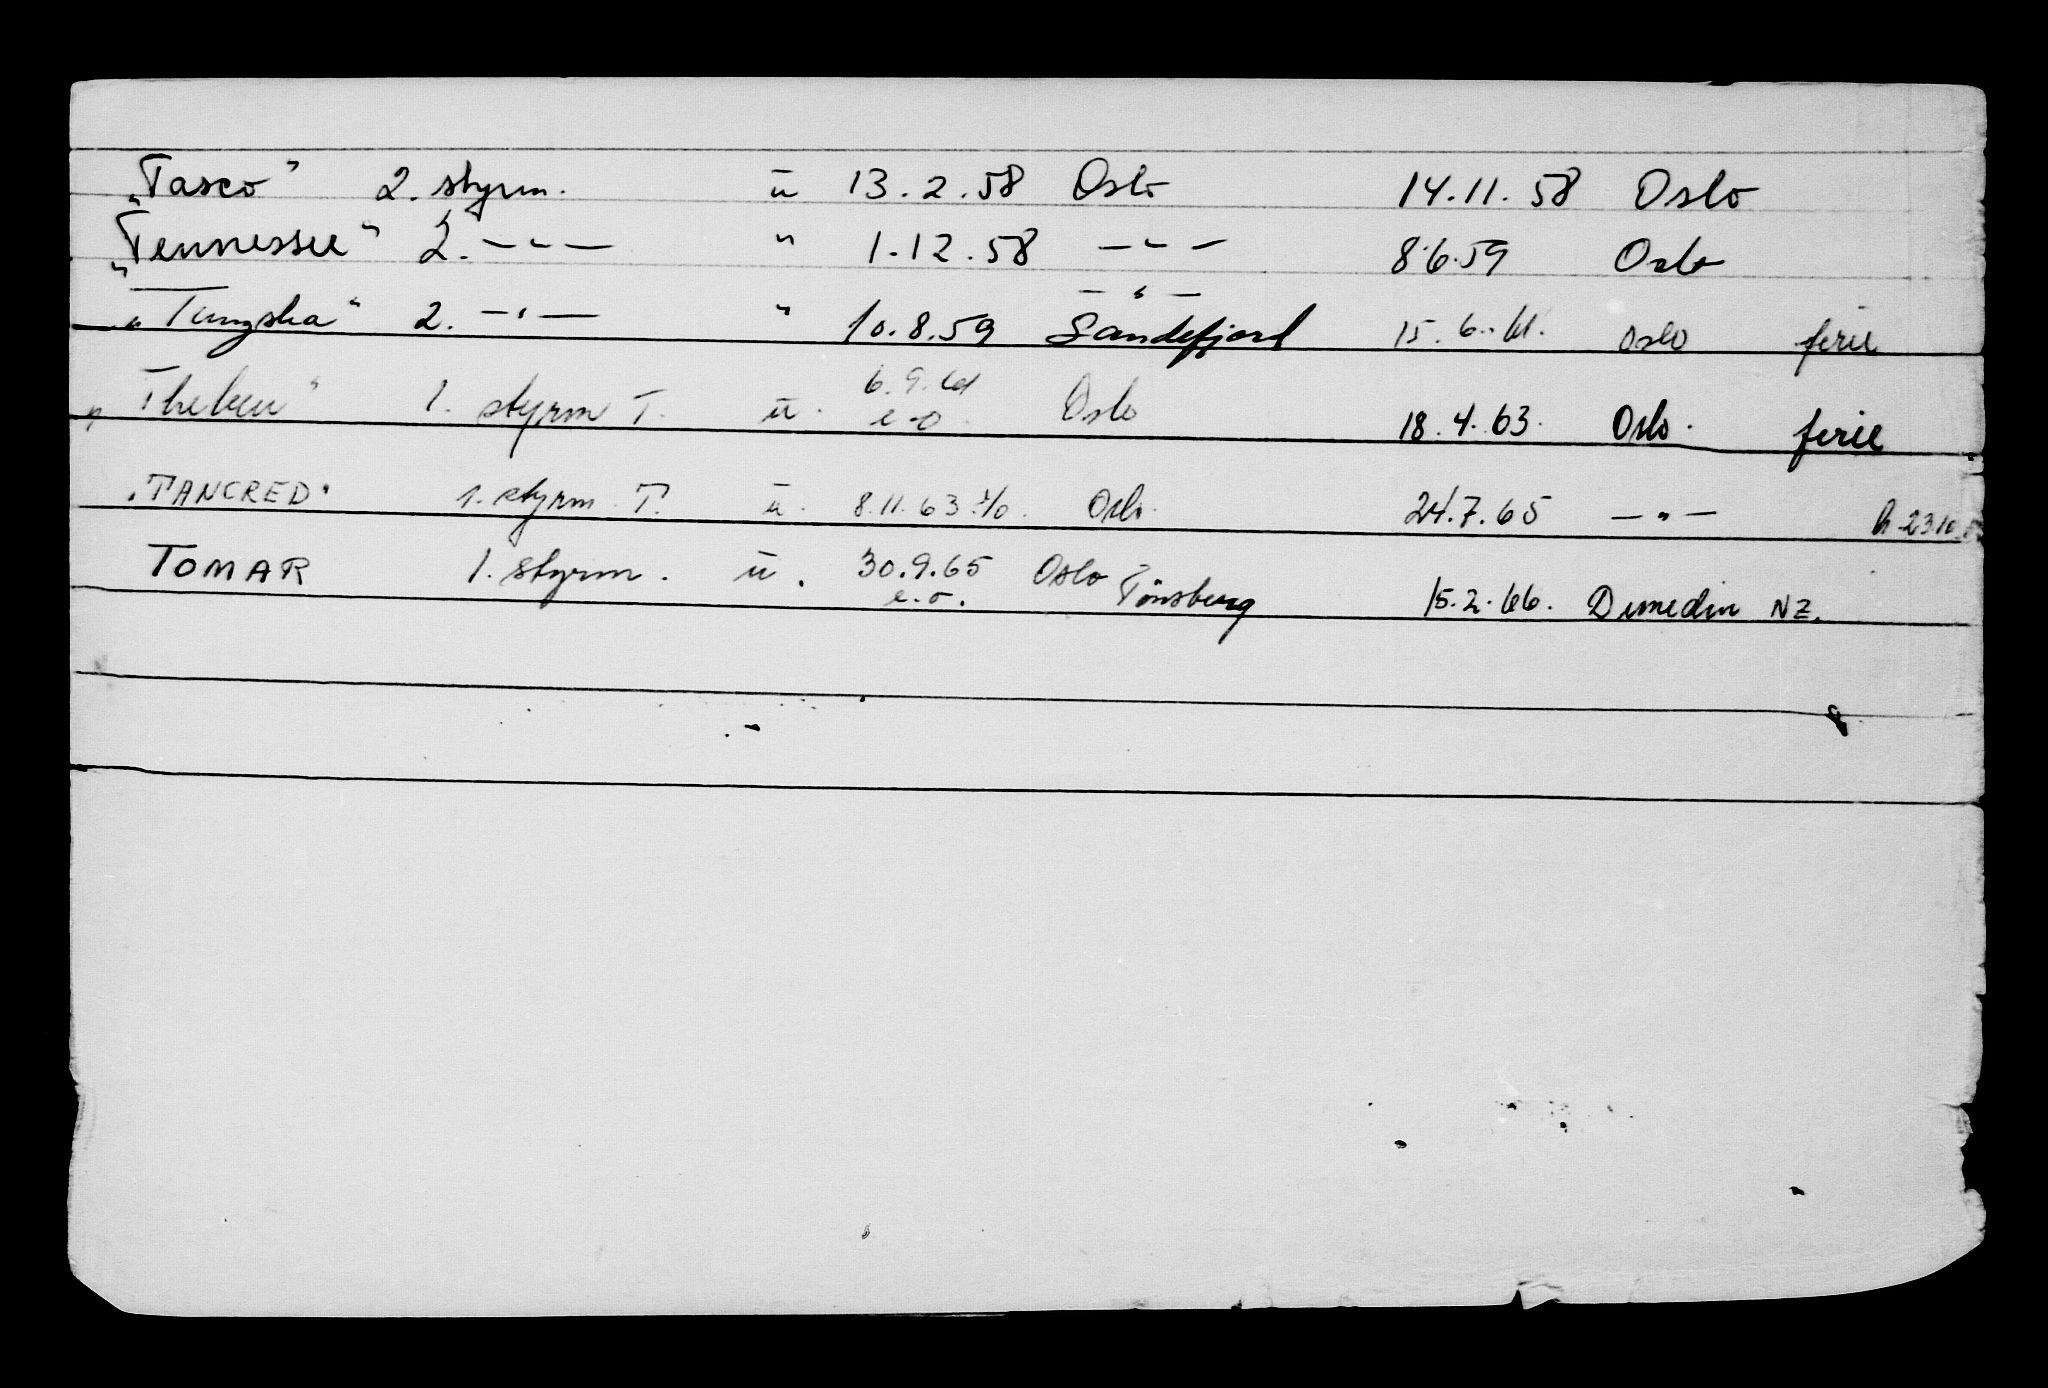 „Tasco" 2. styrm. ū 13.2.58 Oslo 14.11.58 Oslo
„Tennessee" 2. —"— " 1.12.58 —"— 8.6.59 Oslo
„Tungsha" 2. —"— " 10.8.59 —"— Sandefjord 15.6.61. Oslo ferie
„Theben" 1. styrm T. ū. 6.9.61 e.o. Oslo 18.4.63. Oslo. ferie
"TANCRED" 1. styrm. T. ū. 8.11.63 Oslo. 24.7.65 —"—
TOMAR 1. styrm. ū. 30.9.65 e.o. Oslo Tönsberg 15.2.66. Dunedin NZ.